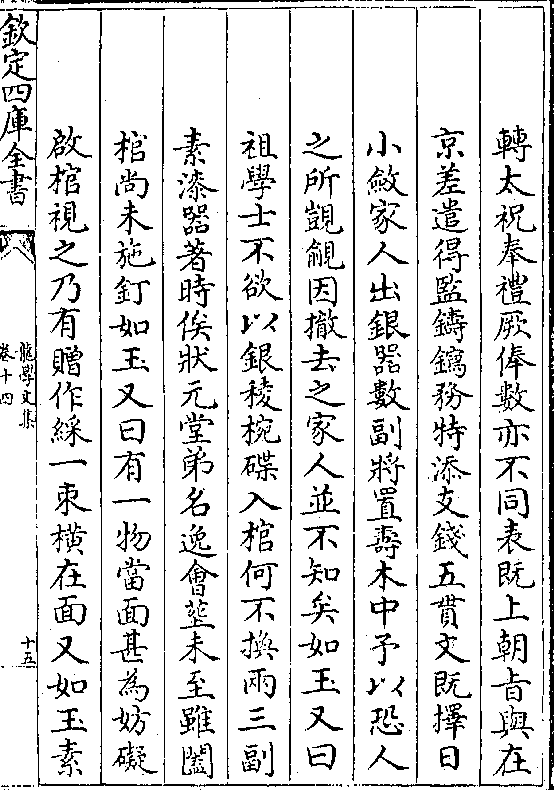 轉太祝奉禮厥俸數亦不同表既上朝旨與在
京差遣得監鑄鎢務特添支錢五貫文既擇日
小斂家人出銀器數副將置壽木中予以恐人
之所覬覦因撤去之家人並不知矣如玉又曰
祖學士不欲以銀稜椀碟入棺何不換兩三副
素漆器著時俟狀元堂弟名逸會葬未至雖闔
棺尚未施釘如玉又曰有一物當面甚為妨礙
啟棺視之乃有贈作綵一束橫在面又如玉素
欽定四庫全書
龍學文集
卷十四
十五